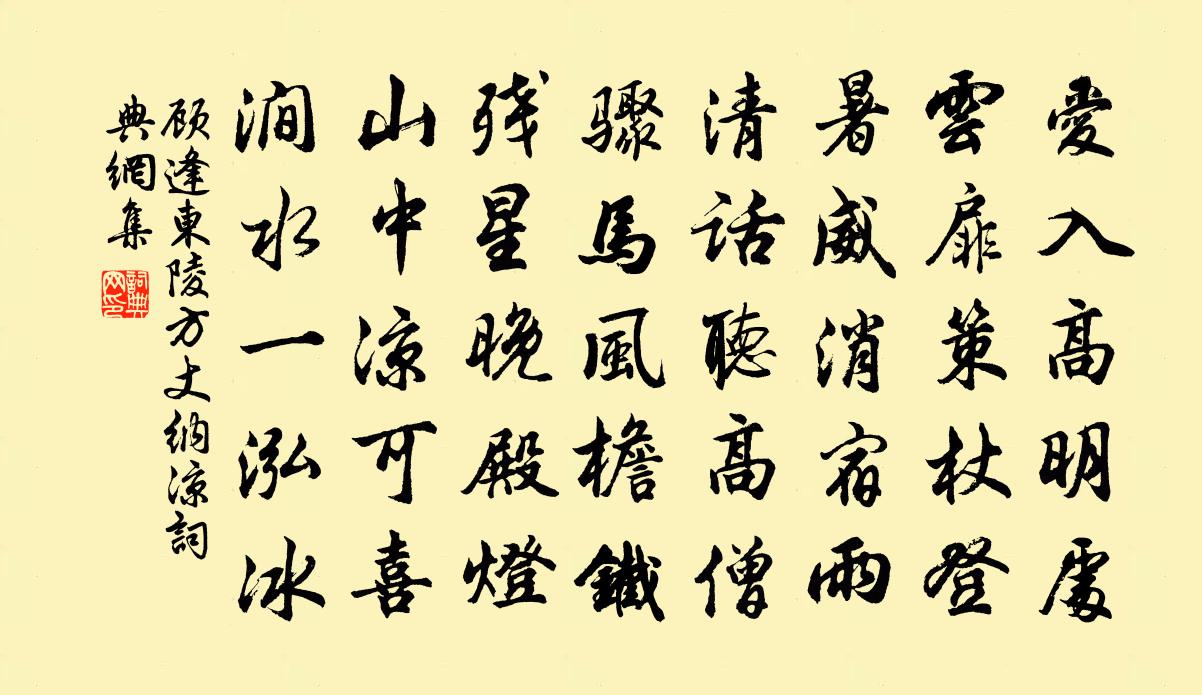 愛入高明處
雲扉策杖登
暑威消宿雨
清話聽高僧
驟馬風檐鐵
殘星晚殿燈
山中涼可喜
澗水一泓冰
顾逢東陵方丈納涼詞
典網集
詞典
网印